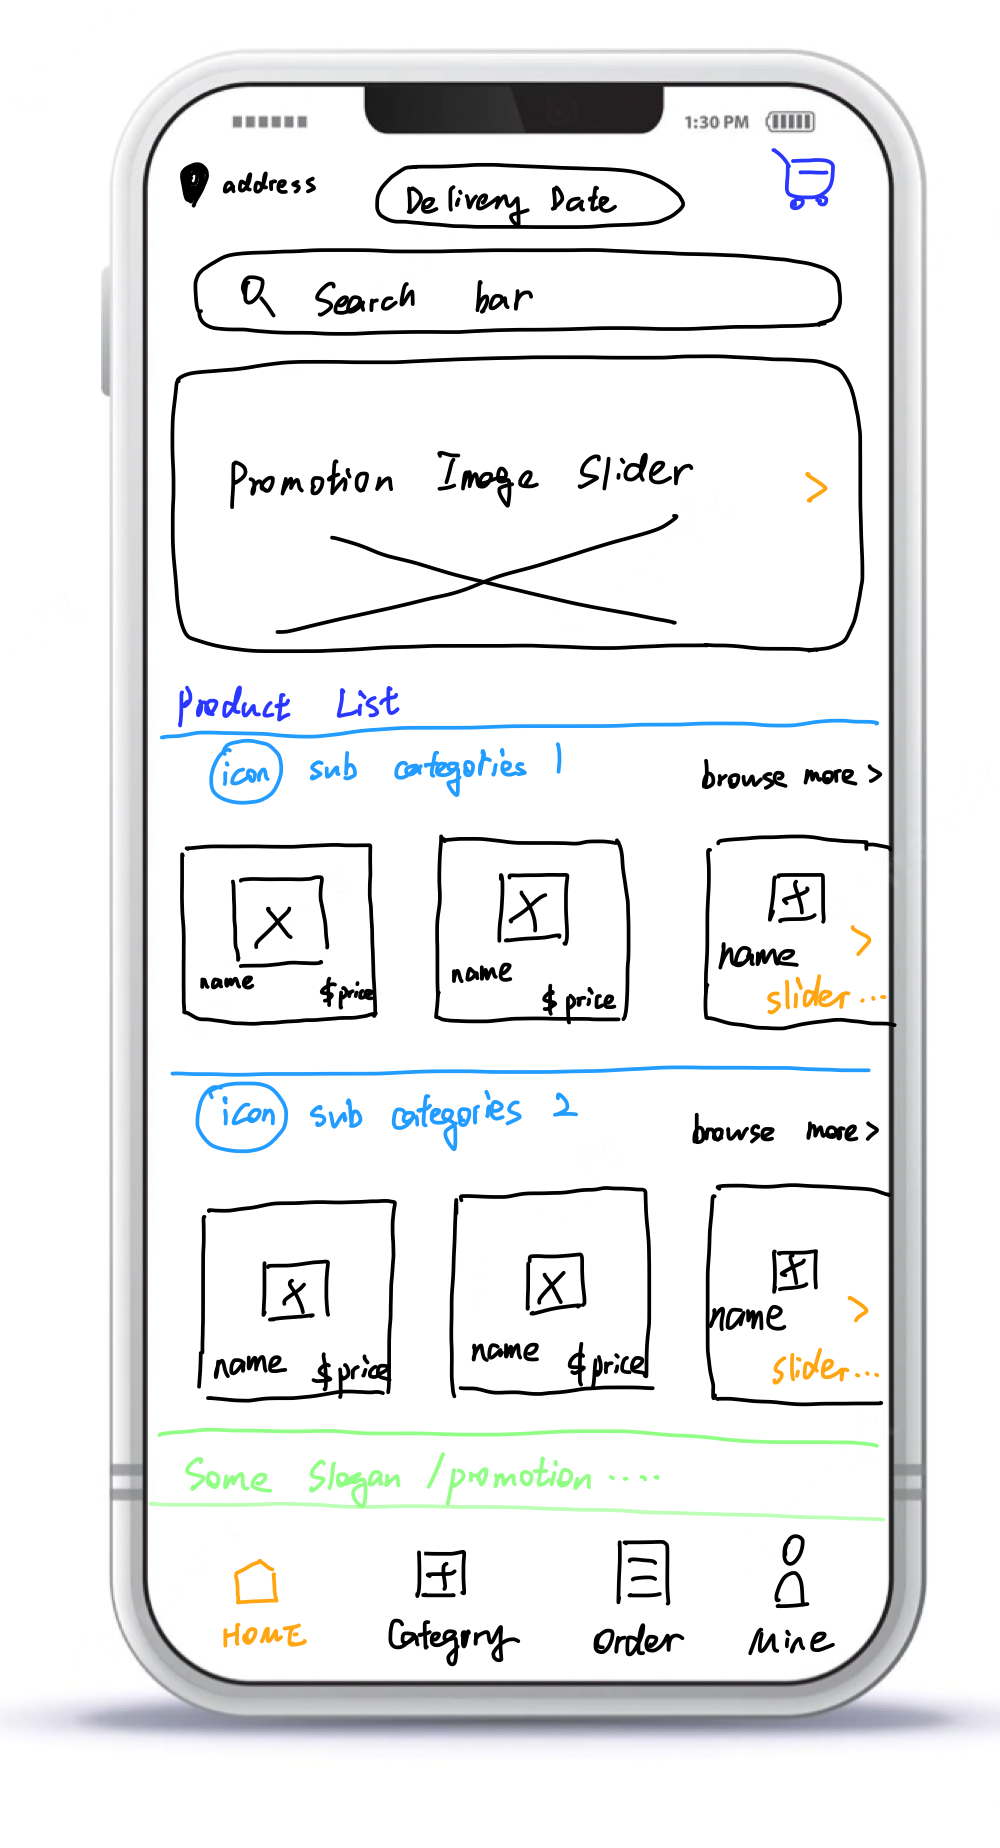 1:30 PM
address
Delivery Date
Search bar
Promotion Image Slider
>
Product List
icon sub categories 1
browse more >
name
$ price
name
$ price
name
>
slider ...
icon sub categories 2
browse more >
name $ price
name $ price
name
>
slider...
Some Slogan / promotion ....
HOME
Category
Order
Mine